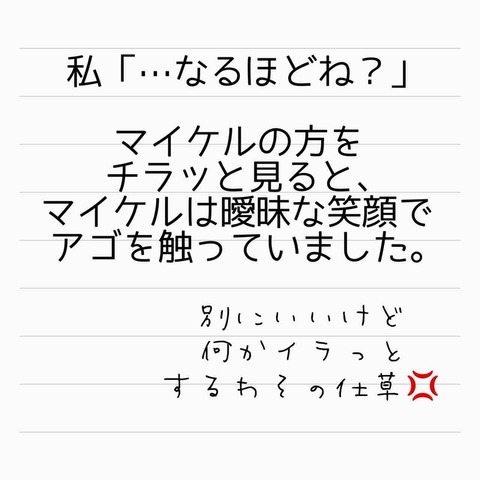 私「…なるほどね？」
マイケルの方を
チラッと見ると、
マイケルは曖昧な笑顔で
アゴを触っていました。
別にいいけど
何かイラっと
するわその仕草💢